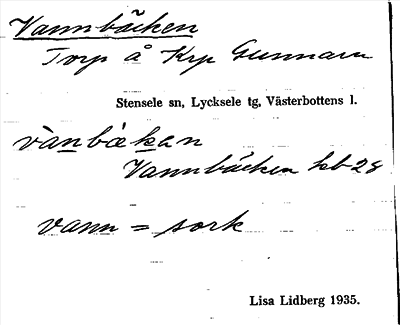 Vannbäcken
Torp å Krp Gunnarn
Stensele sn, Lycksele tg, Västerbottens l.
vànbækan
Vannbäcken hb 28
vann = sork
Lisa Lidberg 1935.